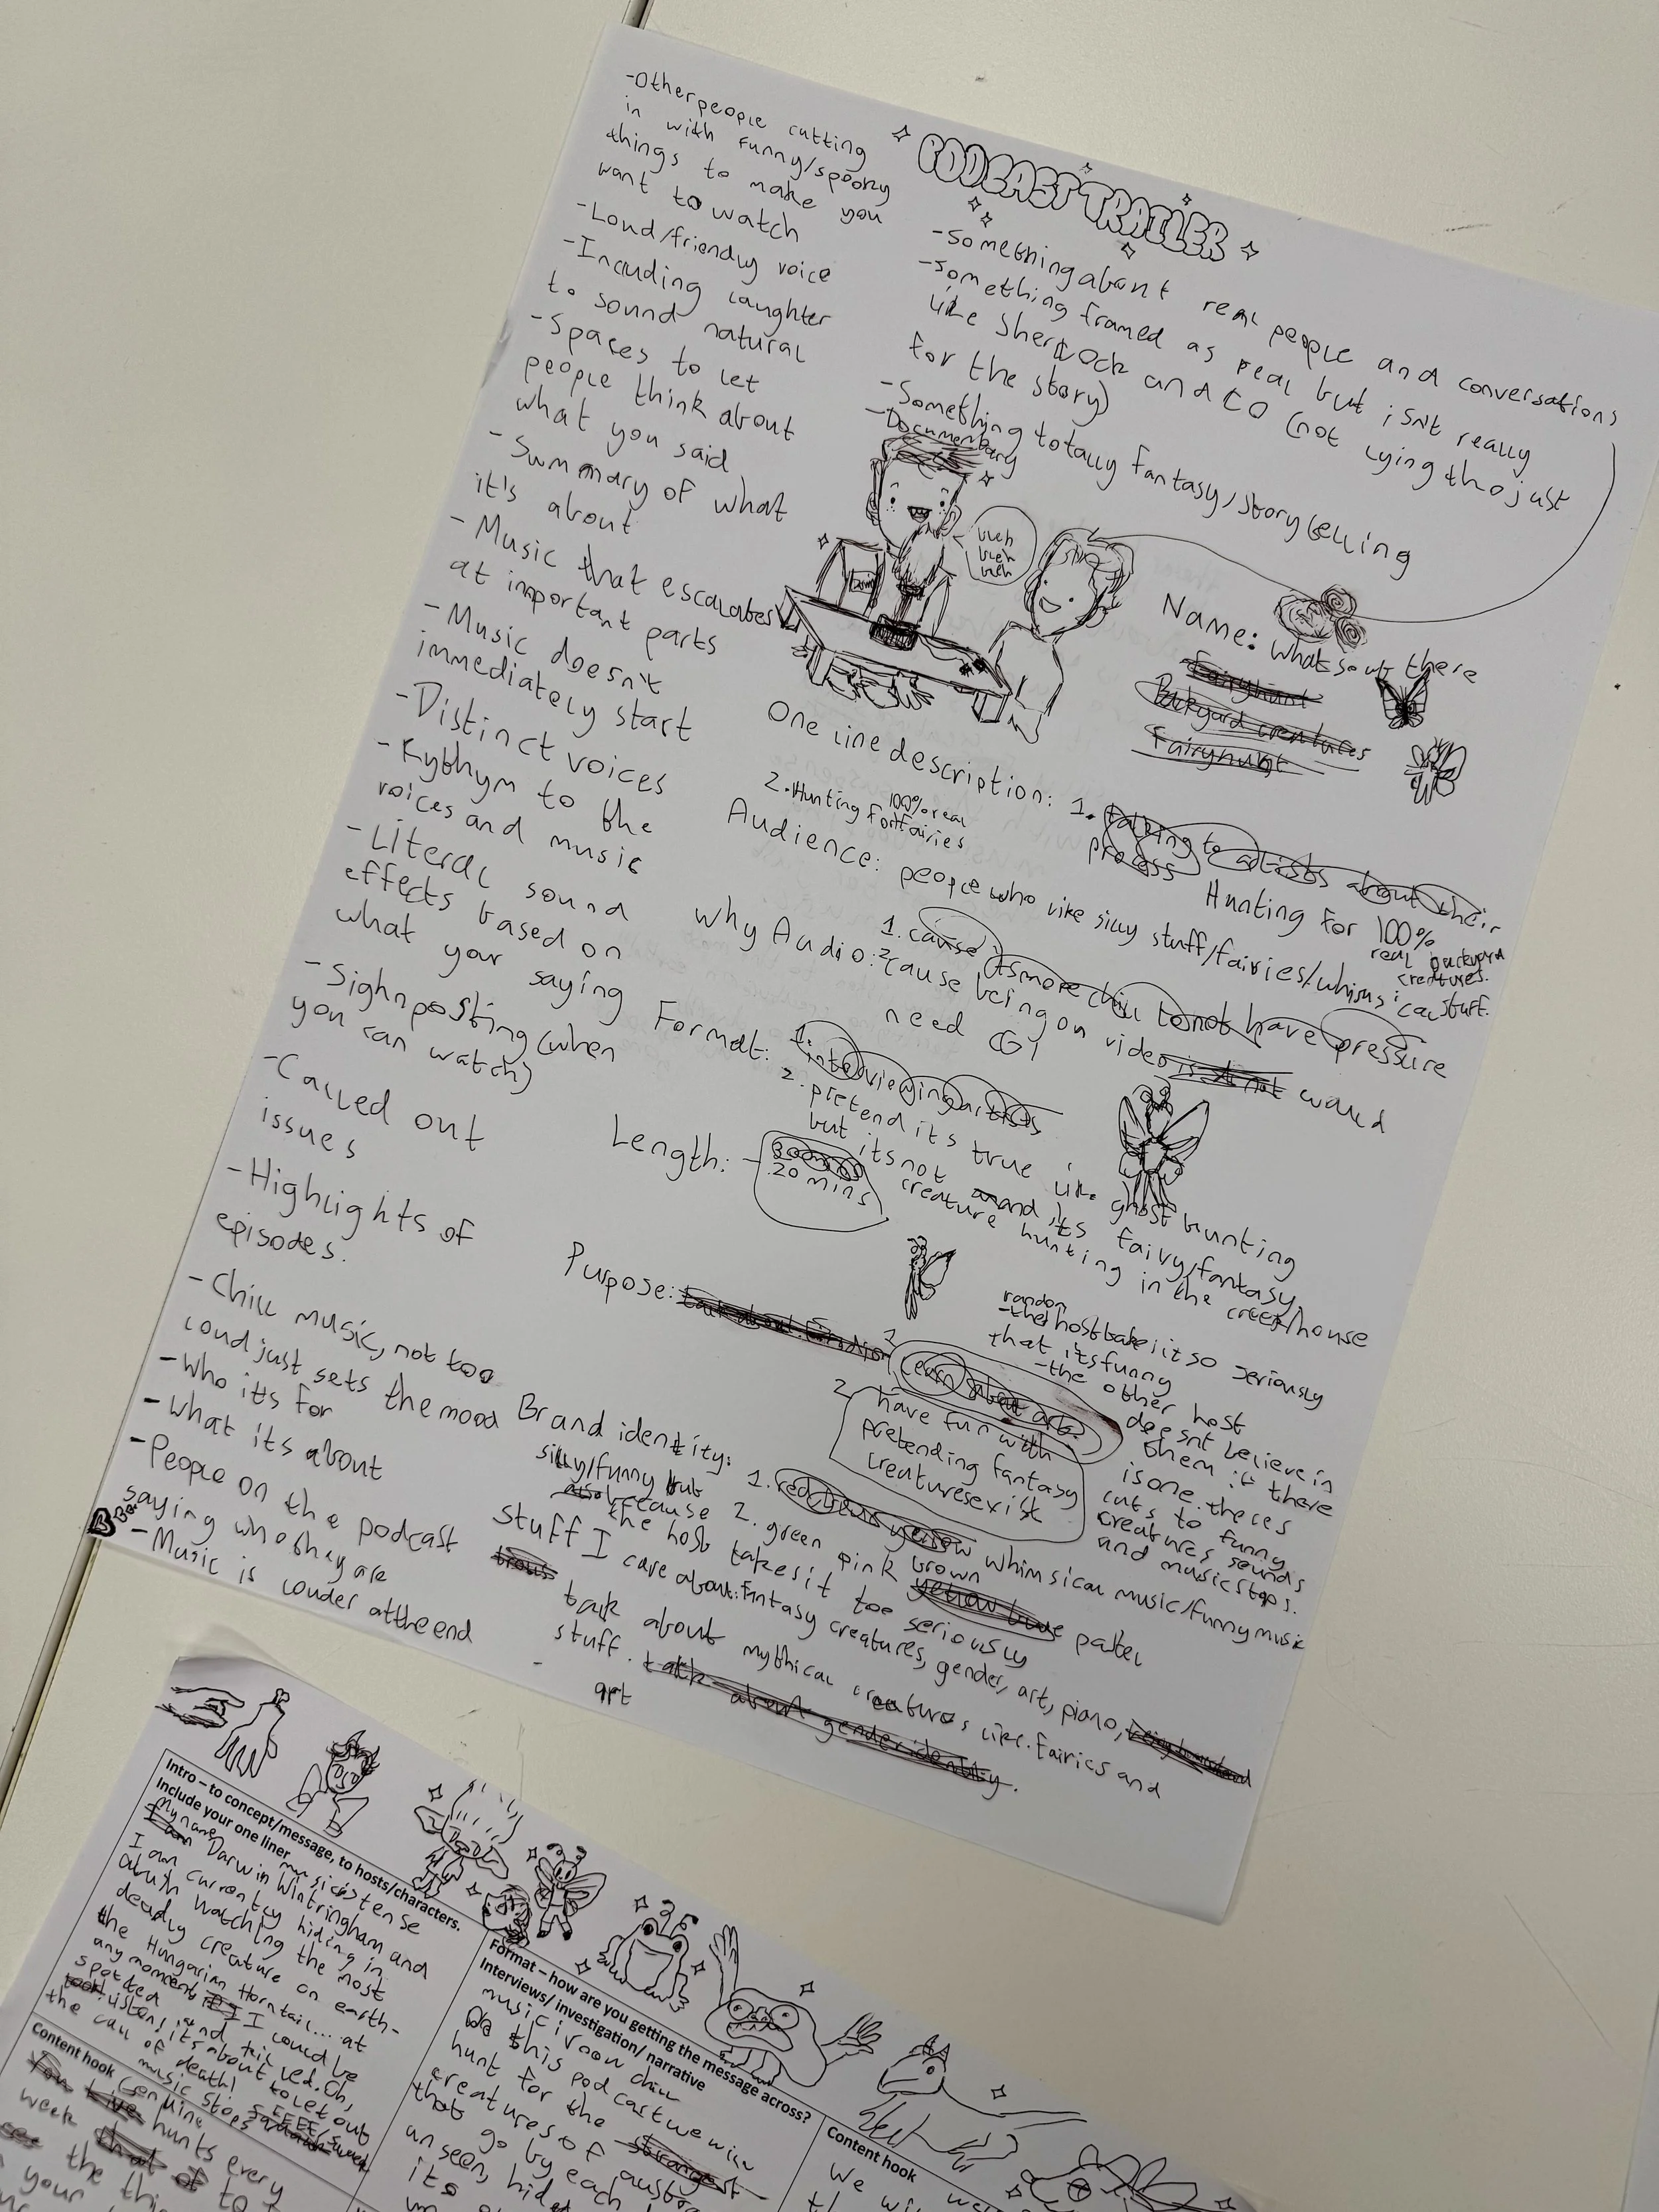 -Other people cutting
in with funny/spooky
things to make you
want to watch
-Loud/friendly voice
-Including laughter
to sound natural
-Spaces to let
people think about
what you said
-Summary of what
it's about
-Music that escalates
at important parts
-Music doesn't
immediately start
-Distinct voices
-Rythym to the
voices and music
-Literal sound
effects based on
what your saying
-Sighnposting (when
you can watch)
-Called out
issues
-Highlights of
episodes.
-Chill music, not too
loud just sets the mood
-Who its for
-What its about
-People on the podcast
saying who they are
-Music is louder at the end
PODCAST TRAILER
-something about real people and conversations
-something framed as real but isn't really
like Sherlock and CO (not lying tho just
for the story)
-Something totally fantasy/storytelling
-Documentary
bleh
bleh
bleh
Name: whats out there
Fairyhunt
Backyard creatures
Fairyhunt
One line description: 1. talking to artists about their
process
Hunting for 100%
real backyard
creatures.
2. Hunting for 100% real fairies
Audience: people who like silly stuff/fairies/whimsical stuff.
Why Audio: 1. cause its more chill to not have pressure
2 cause being on video would
need CGI
Format: 1. interviewing artists
2. pretend its true like ghost hunting
but its not and its fairy/fantasy
creature hunting in the creek/house
Length: - 30 mins
20 mins
random
-the host take it so seriously
that its funny
-the other host
doesnt believe in
them if there
is one. theres
cuts to funny
creatures sounds
and music stops.
Purpose:
learn about art.
2 have fun with
pretending fantasy
creatures exist
Brand identity: 1. red blue yellow whimsical music/funny music
2. green pink brown yellow blue pallel
silly/funny but
also because
the host takes it too seriously
Stuff I care about: Fantasy creatures, gender, art, piano,
talk about mythical creatures like fairies and
stuff. talk about gender identity.
-
art
Intro – to concept/message, to hosts/characters.
Include your one liner
music is tense
My name Darwin Wintringham and
I am currently hiding in
watching the most
deadly creature on earth-
the Hungarian Horntail... at
any moment I could be
spotted and killed. Oh,
listen, it's about to let out
the call of death!
music stops
Format – how are you getting the message across?
Interviews/ investigation/ narrative
music iroon chill
On this podcast we will
hunt for the strangest
creatures of
that go by each
unseen,
its
Content hook
(genuine
You Live hunts every
week that
the
your
Content hook
We